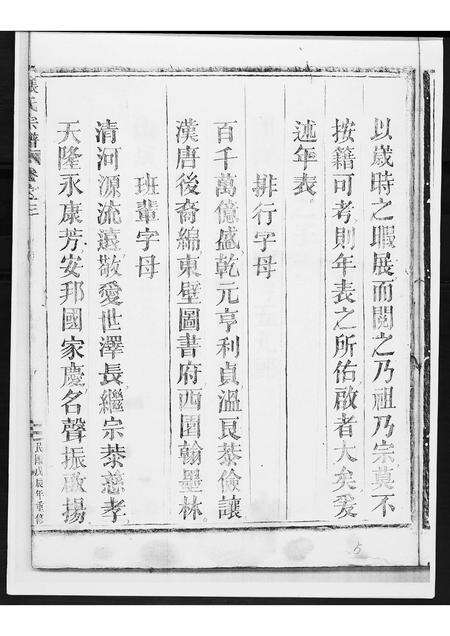 以歲時之暇展而閱之乃祖乃宗莫不
按籍可考則年表之所佑啟者大矣爰
述年表
排行字母
百千萬億盛乾元亨利貞溫良恭儉讓
漢唐後裔綿東壁圖書府西園翰墨林
班輩字母
清河源流遠敬愛世澤長繼宗恭慈孝
天隆永康芳安邦國家慶名聲振啟揚
張氏宗譜 卷之二
民國戊辰年重修
5